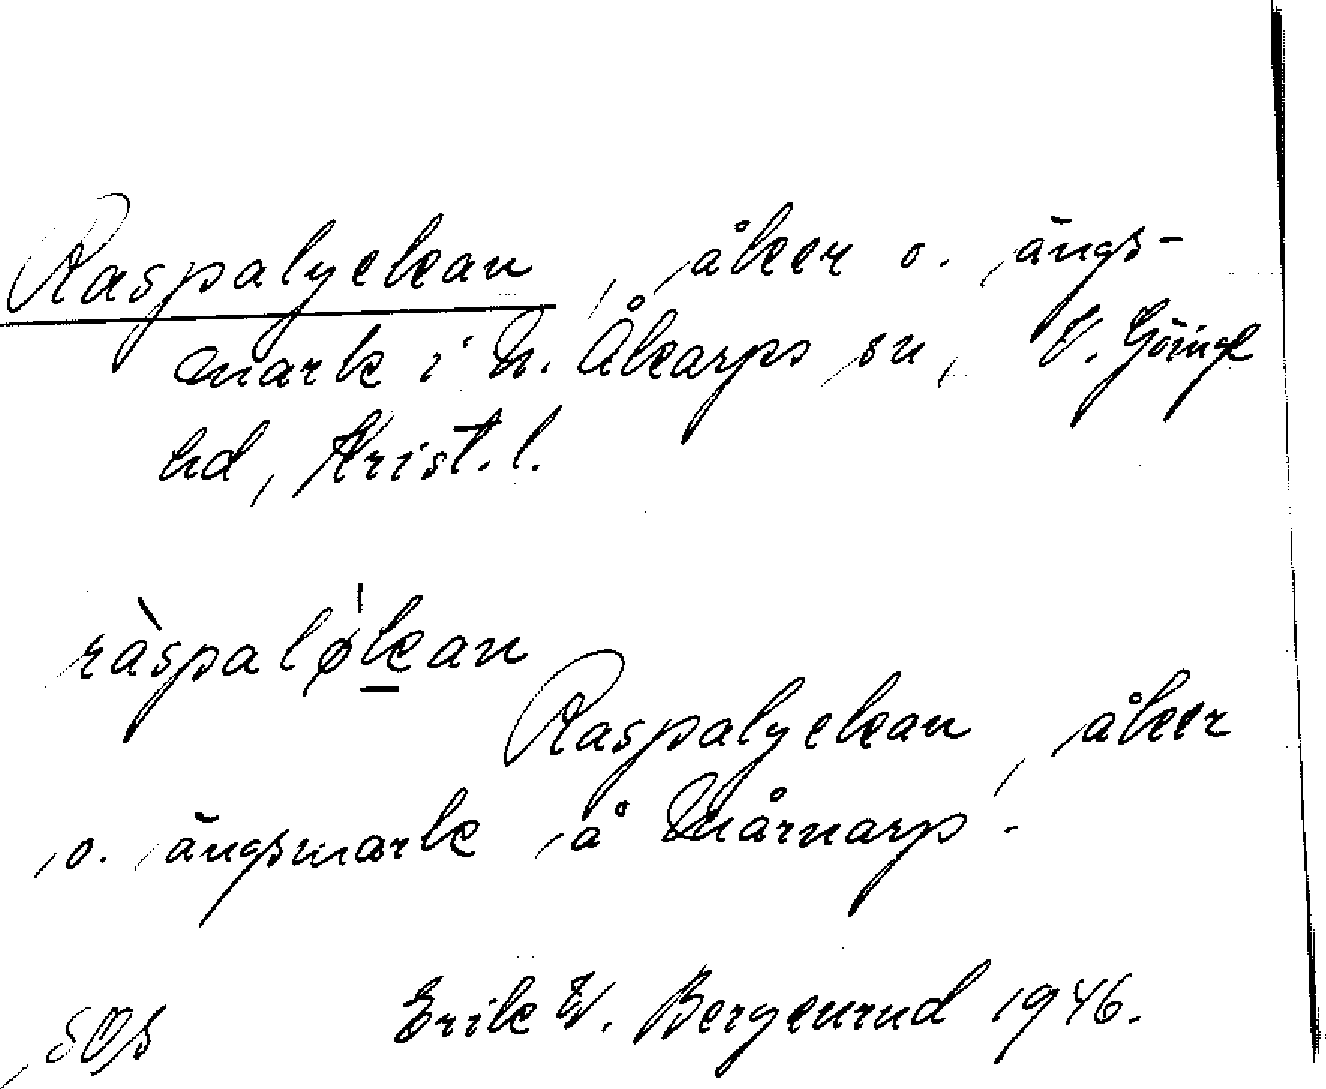 Raspalyckan, åker o. ängs-
mark i N. Åkarps sn, V. Göinge
hd, Krist. l.
ràspalø̍kan
Raspalyckan, åker
o. ängsmark å Mårnarp.
Erik W. Bergenrud 1946.